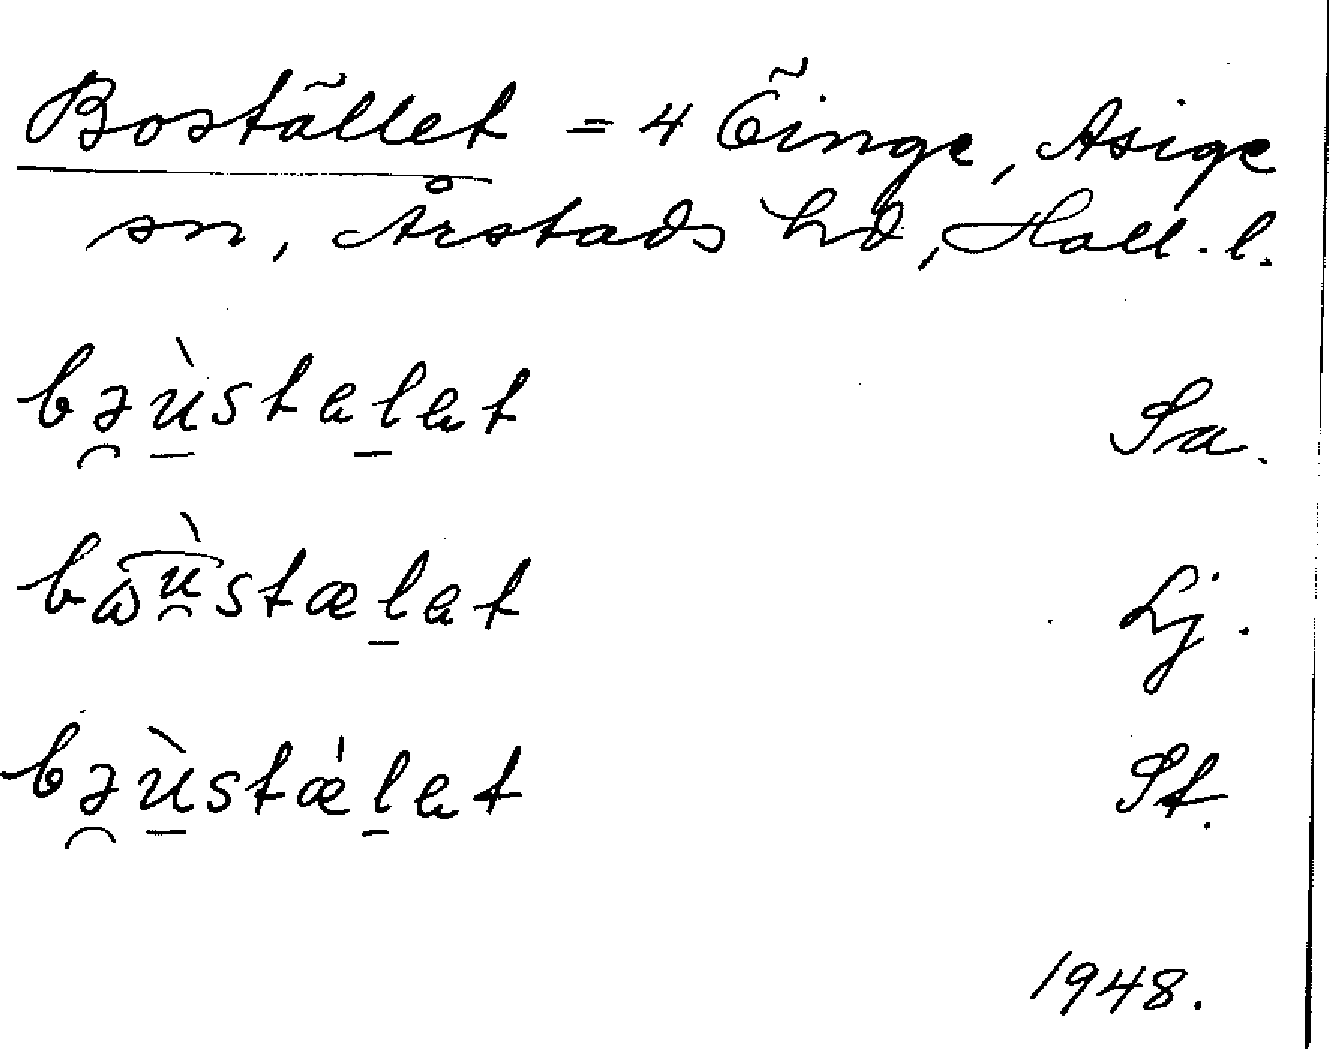 Bostället = 4 Öinge, Asige
sn, Årstads hd, Hall. l.
bəùstelet Sa.
bωùstælet Lj.
bəùstǽlet St.
1948.